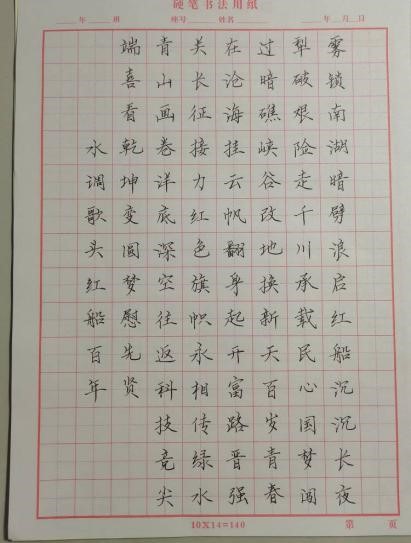 硬笔书法用纸
年 班 座号 姓名 年 月 日
雾锁南湖暗劈浪启红船沉沉长夜
犁破艰险走千川承载民心国梦闯
过暗礁峡谷改地换新天百岁青春
在沧海挂云帆翻身起开富路晋强
关长征接力红色旗帜永相传绿水
青山画卷洋底深空往返科技竞尖
端喜看乾坤变圆梦慰先贤
水调歌头红船百年
10X14=140 第 页